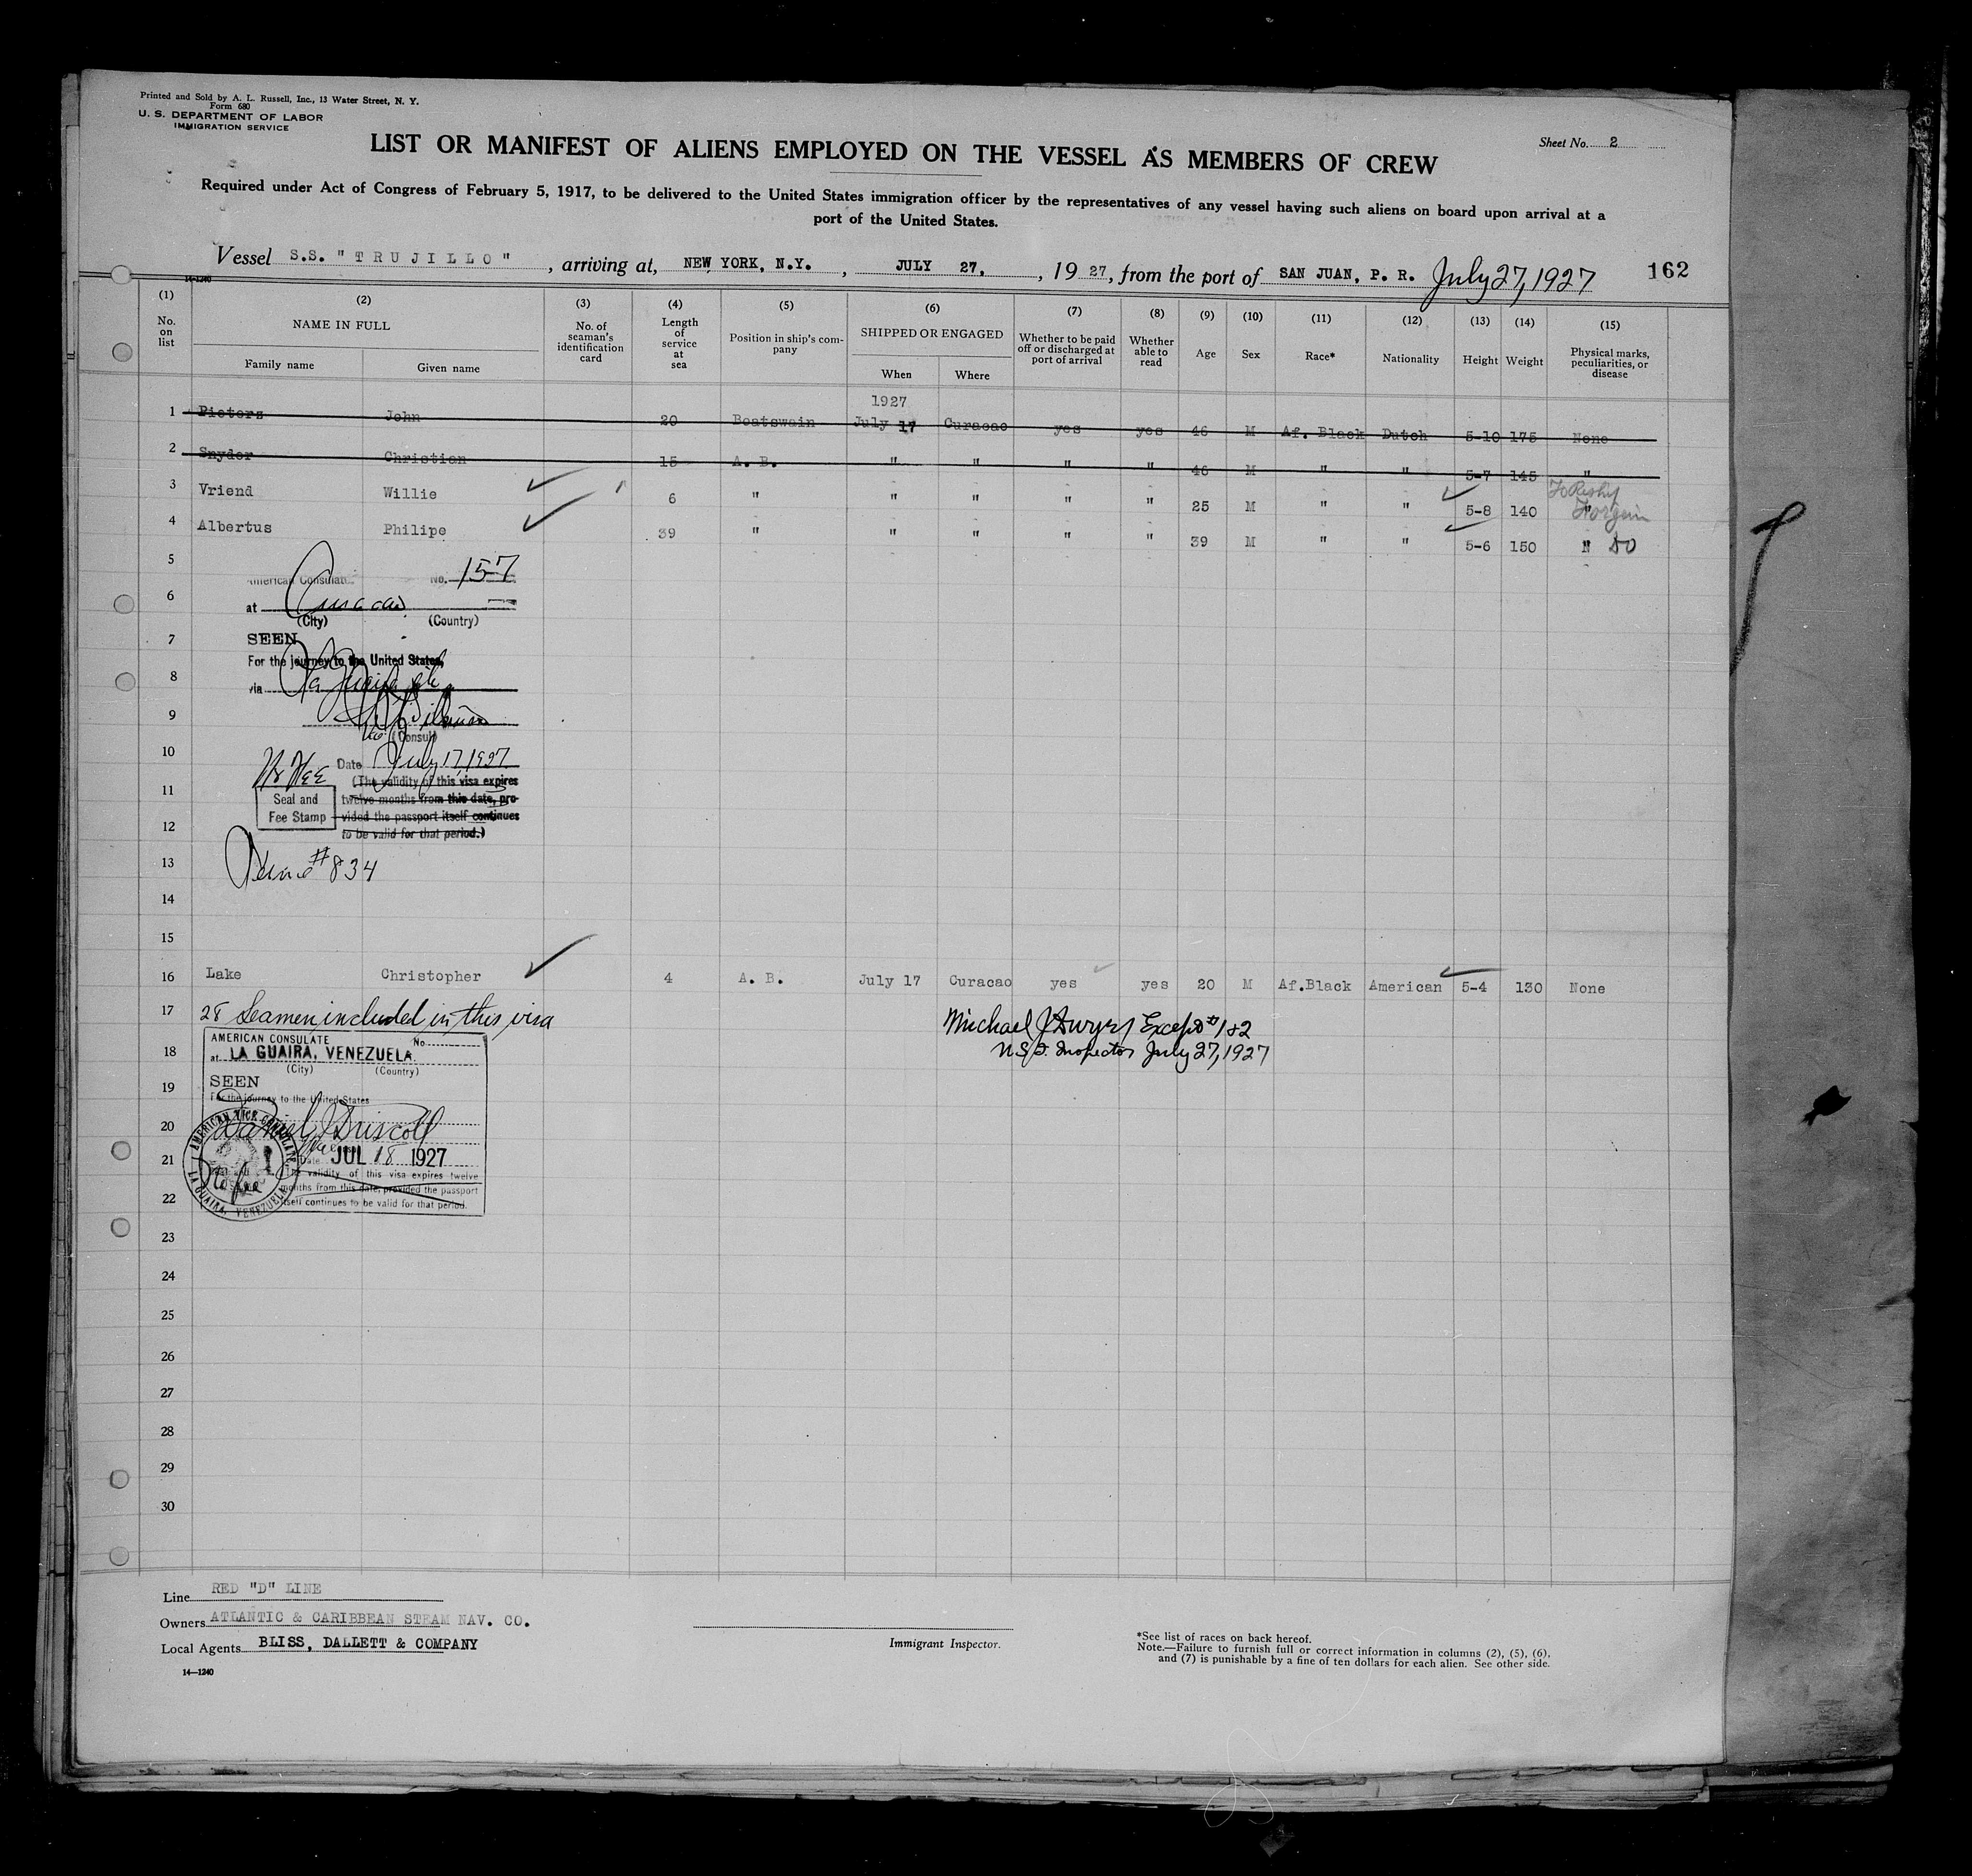 Printed and Sold by A. L. Russell, Inc., 13 Water Street, N. Y.
Form 680
U. S. DEPARTMENT OF LABOR
IMMIGRATION SERVICE
Sheet No. 2
LIST OR MANIFEST OF ALIENS EMPLOYED ON THE VESSEL AS MEMBERS OF CREW
Required under Act of Congress of February 5, 1917, to be delivered to the United States immigration officer by the representatives of any vessel having such aliens on board upon arrival at a
port of the United States.
Vessel S.S. "TRUJILLO", arriving at, NEW YORK, N.Y., JULY 27, , 19 27, from the port of SAN JUAN, P. R. July 27, 1927 162
14-1240
(1) (2) (3) (4) (5) (6) (7) (8) (9) (10) (11) (12) (13) (14) (15)
No. on list NAME IN FULL Family name Given name No. of seaman's identification card Length of service at sea Position in ship's company SHIPPED OR ENGAGED When Where Whether to be paid off or discharged at port of arrival Whether able to read Age Sex Race* Nationality Height Weight Physical marks, peculiarities, or disease
1927
1 Pieters John 20 Boatswain July 17 Curacao yes yes 46 M Af. Black Dutch 5-10 175 None
2 Snyder Christian 15 A. B. " " " " 46 M " " 5-7 145 "
3 Vriend Willie 6 " " " " " 25 M " " 5-8 140 "
4 Albertus Philipe 39 " " " " " 39 M " " 5-6 150 " do
5
American Consulate No. 157
6
at Curacao
(City) (Country)
7 SEEN
For the journey to the United States,
8
via La Guaira
9
Vice (Consul)
10
No Fee Date July 17, 1927
(The validity of this visa expires
11
Seal and Fee Stamp twelve months from this date, pro-
vided the passport itself continues
12
to be valid for that period.)
13 #834
14
15
16 Lake Christopher 4 A. B. July 17 Curacao yes yes 20 M Af.Black American 5-4 130 None
17 28 Seamen included in this visa
Michael J Dwyer Except #1+2
AMERICAN CONSULATE No.
18 at LA GUAIRA, VENEZUELA.
Inspector July 27, 1927
(City) (Country)
19 SEEN
For the journey to the United States
20 Daniel J Driscoll
21 Date JUL 18 1927
The validity of this visa expires twelve
months from this date, provided the passport
22 itself continues to be valid for that period.
AMERICAN VICE CONSULATE
LA GUAIRA, VENEZUELA
No fee
23
24
25
26
27
28
29
30
Line RED "D" LINE
Owners ATLANTIC & CARIBBEAN STEAM NAV. CO.
Local Agents BLISS, DALLETT & COMPANY
14-1240
Immigrant Inspector.
*See list of races on back hereof.
Note.—Failure to furnish full or correct information in columns (2), (5), (6),
and (7) is punishable by a fine of ten dollars for each alien. See other side.